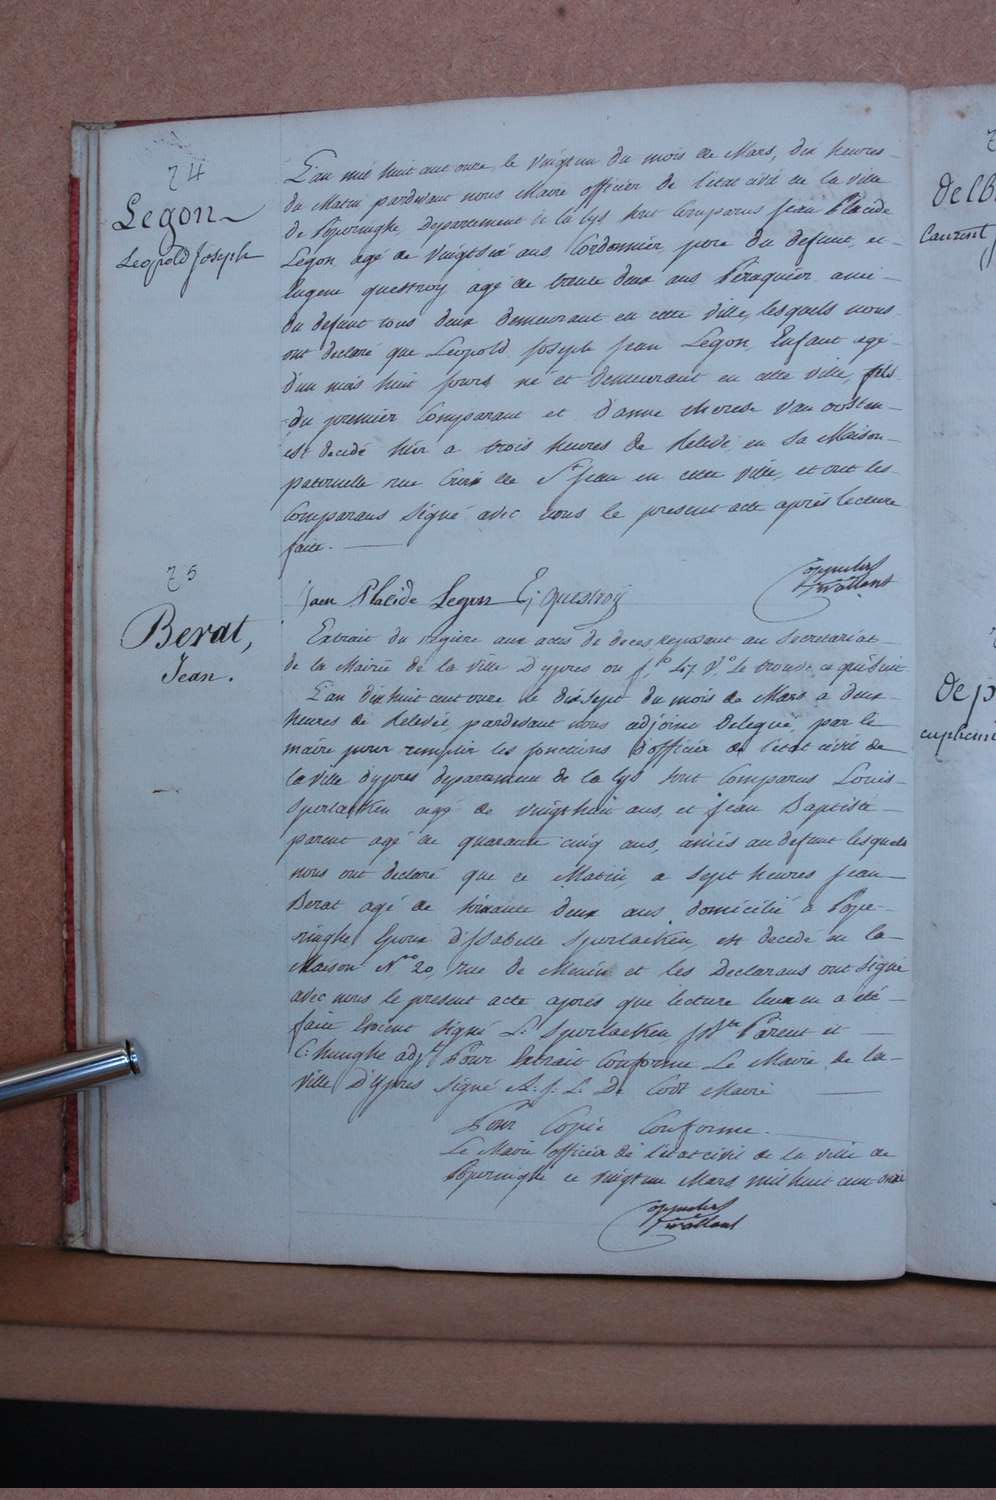 74
Legon
Leopold Joseph
L'an mil huit cent onze, le vingt un du mois de Mars, dix heures
du Matin pardevant nous Maire officier de l'état civil de la ville
de Poperinghe, Departement de la Lys sont Comparus Jean Placide
Legon agé de vingt six ans, Cordonnier, pere du defunt, et
Eugene questroy agé de trente deux ans Péraquier ami
du defunt tous deux demeurant en cette ville, lesquels nous
ont declaré que Leopold Joseph Jean Legon, Enfant agé
d'un mois huit jours né et demeurant en cette ville, fils
du premier Comparant et d'anne therese Van oosten
est decedé hier a trois heures de Relevé en sa Maison
paternelle rue Croix de St Jean en cette ville, et ont les
Comparans signé avec nous le present acte après lecture
faite.
Jaen Placide Legon E; questroy
75
Berat,
Jean.
Extrait du régitre aux actes de deces, Reposant au Secretariat
de la Mairie de la ville D'ypres ou fo 47 Vo Le trouve ce qui suit
L'an dix huit cent onze le dix sept du mois de Mars a deux
heures de Relevée, pardevant nous adjoint delegué par le
maire pour remplir les fonctions d'officier de l'état civil de
la ville d'ypres departement de la Lys sont Comparus Louis
Sperlaeken agé de vingt huit ans, et Jean Baptiste
parent agé de quarante cinq ans, amis au defunt lesquels
nous ont declaré que ce Matin, a sept heures Jean
Berat agé de soixante deux ans domicilié a Pope
ringhe Epoux d'Isabelle Sperlaeken, est decedé en la
Maison No 20, rue de Menin et les Declarans ont signé
avec nous le present acte après que lecture leur en a été
faite Etoient signé L. Sperlaeken J Bte Parent et
C. hunghe adjt Pour Extrait Conforme Le Maire de la
ville D'Ypres signé A. J. L. D. Codt Maire
Pour Copie Conforme.
Le Maire officier de l'état civil de la ville de
Poperinghe ce vingt un Mars mil huit cent onze
Delb
Laurent J
Dep
euphemi